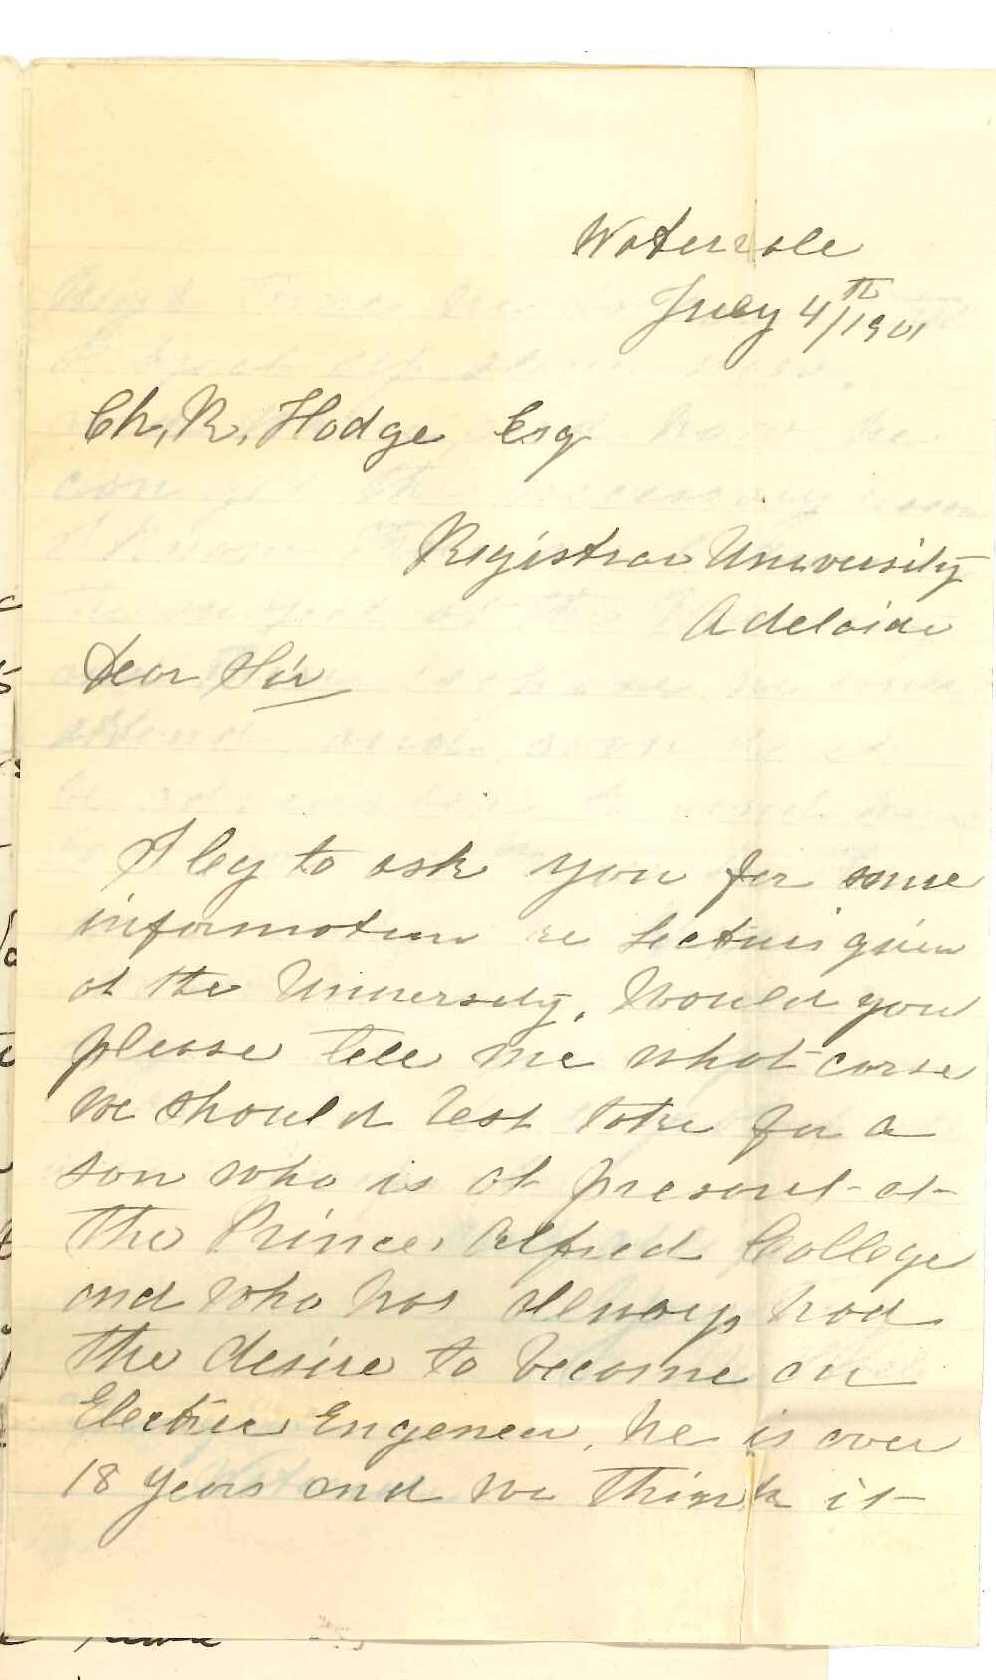 Watervale
July 4th/1901
Ch. R. Hodge Esq
Registrar University
Adelaide
Dear Sir
I beg to ask you for some
information re Lectures given
at the University. Would you
please tell me what corse
we should best take for a
son who is at present at
the Prince Alfred College
and who has always had
the desire to become an
Electric Engeneer, he is over
18 years and we think it